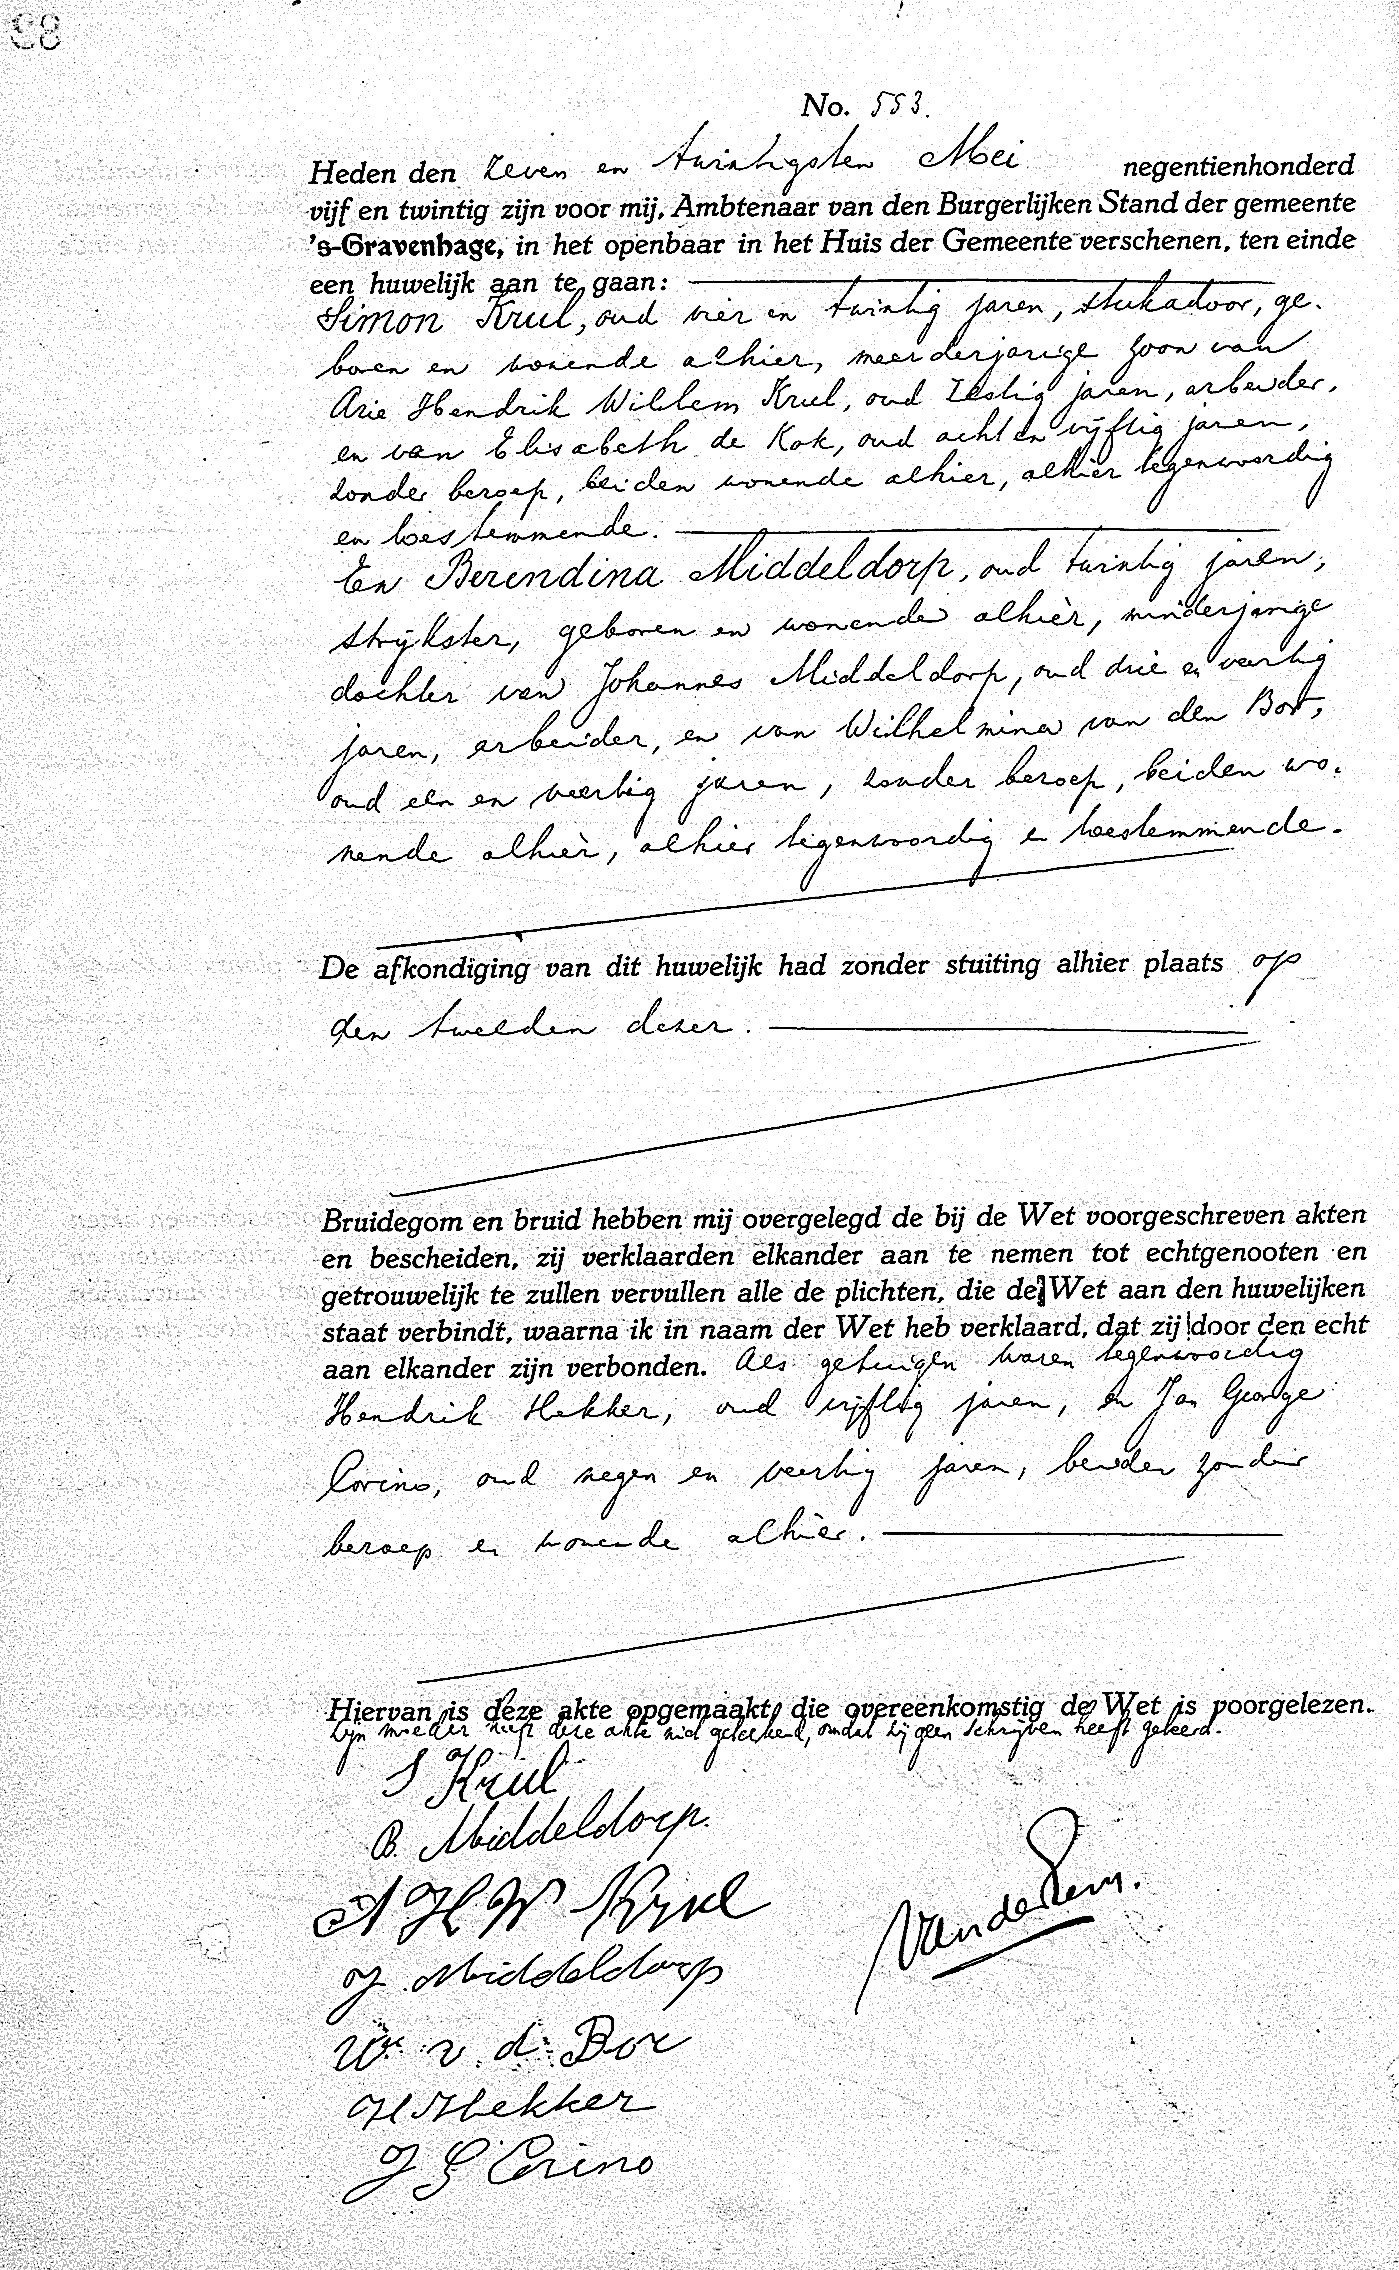 No. 553.
Heden den zeven en twintigsten Mei negentienhonderd
vijf en twintig zijn voor mij, Ambtenaar van den Burgerlijken Stand der gemeente
's-Gravenhage, in het openbaar in het Huis der Gemeente verschenen, ten einde
een huwelijk aan te gaan:
Simon Krul, oud vier en twintig jaren, stukadoor, ge-
boren en wonende alhier, meerderjarige zoon van
Arie Hendrik Willem Krul, oud zestig jaren, arbeider,
en van Elisabeth de Kok, oud acht en vijftig jaren,
zonder beroep, beiden wonende alhier, alhier tegenwoordig
en toestemmende.
En Berendina Middeldorp, oud twintig jaren,
strijkster, geboren en wonende alhier, minderjarige
dochter van Johannes Middeldorp, oud drie en veertig
jaren, arbeider, en van Wilhelmina van den Bor,
oud een en veertig jaren, zonder beroep, beiden wo-
nende alhier, alhier tegenwoordig en toestemmende.
De afkondiging van dit huwelijk had zonder stuiting alhier plaats op
den tweeden dezer.
Bruidegom en bruid hebben mij overgelegd de bij de Wet voorgeschreven akten
en bescheiden, zij verklaarden elkander aan te nemen tot echtgenooten en
getrouwelijk te zullen vervullen alle de plichten, die de Wet aan den huwelijken
staat verbindt, waarna ik in naam der Wet heb verklaard, dat zij door den echt
aan elkander zijn verbonden. Als getuigen waren tegenwoordig
Hendrik Hekker, oud vijftig jaren, en Jan George
Corino, oud negen en veertig jaren, beiden zonder
beroep en wonende alhier.
Hiervan is deze akte opgemaakt, die overeenkomstig de Wet is voorgelezen.
Zijn moeder heeft deze akte niet geteekend, omdat zij geen schrijven heeft geleerd.
S Krul
B. Middeldorp.
A H W Krul
J. Middeldorp
W. v. d. Bor
H Hekker
J G Corino